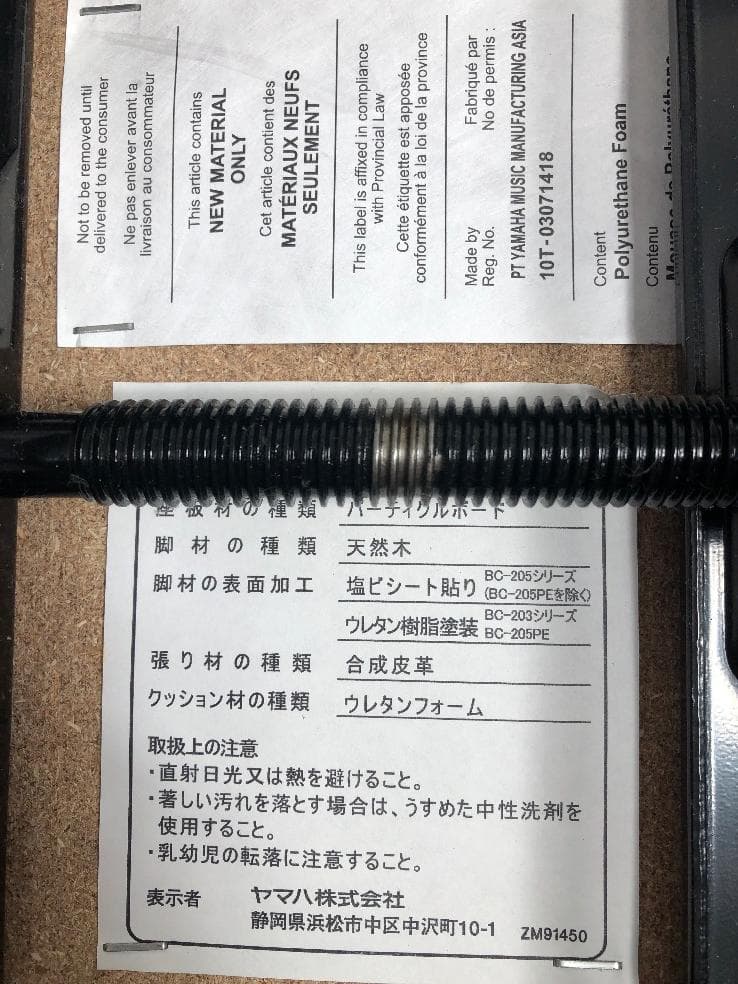 Not to be removed until
delivered to the consumer
Ne pas enlever avant la
livraison au consommateur
This article contains
NEW MATERIAL
ONLY
Cet article contient des
MATÉRIAUX NEUFS
SEULEMENT
This label is affixed in compliance
with Provincial Law
Cette étiquette est apposée
conformément à la loi de la province
Made by Fabriqué par
Reg. No. No de permis :
PT YAMAHA MUSIC MANUFACTURING ASIA
10T-03071418
Content
Polyurethane Foam
Contenu
Mousse de Polyuréthane
座板材の種類 パーティクルボード
脚材の種類 天然木
脚材の表面加工 塩ビシート貼り BC-205シリーズ
(BC-205PEを除く)
ウレタン樹脂塗装 BC-203シリーズ
BC-205PE
張り材の種類 合成皮革
クッション材の種類 ウレタンフォーム
取扱上の注意
・直射日光又は熱を避けること。
・著しい汚れを落とす場合は、うすめた中性洗剤を
使用すること。
・乳幼児の転落に注意すること。
表示者 ヤマハ株式会社
静岡県浜松市中区中沢町10-1 ZM91450